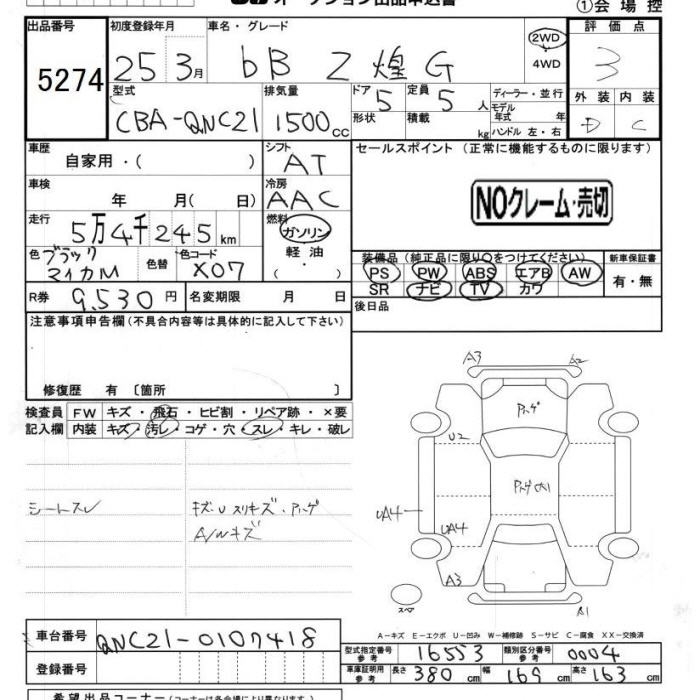 オークション出品申込書
①会場控
出品番号 5274
初度登録年月 25 3月
車名・グレード bB Z 煌 G
2WD
4WD
評価点 3
型式 CBA-QNC21
排気量 1500cc
ドア 5
定員 5人
ディーラー・並行
モデル年式 年
形状
積載 kg
ハンドル 左・右
外装 D
内装 C
車歴 自家用・( )
シフト AT
セールスポイント (正常に機能するものに限ります)
車検 年 月( 日)
冷房 AAC
NOクレーム・売切
走行 5万4千245km
燃料 ガソリン
軽油
・( )
色 ブラックマイカM
色替
色コード X07
装備品 (純正品に限り○をつけてください)
新車保証書
PS PW ABS エアB AW
有・無
SR ナビ TV カワ
R券 9,530円
名変期限 月 日
後日品
注意事項申告欄 (不具合内容等は具体的に記入して下さい)
修復歴 有 〔箇所 〕
検査員記入欄
FW キズ・飛石・ヒビ割・リペア跡・×要
内装 キズ・汚レ・コゲ・穴・スレ・キレ・破レ
シートスレ
キズ・U スリキズ・アトゲ
A/Wキズ
A3 A2
U2
UA4 UA4
A3
A1
スペア
A-キズ E-エクボ U-凹み W-補修跡 S-サビ C-腐食 XX-交換済
車台番号 QNC21-0107418
登録番号
型式指定番号 参考 16553
類別区分番号 参考 0004
車庫証明用 参考 長さ 380cm 幅 169cm 高さ 163cm
希望出品コーナー (コーナーは各会場により異なります)